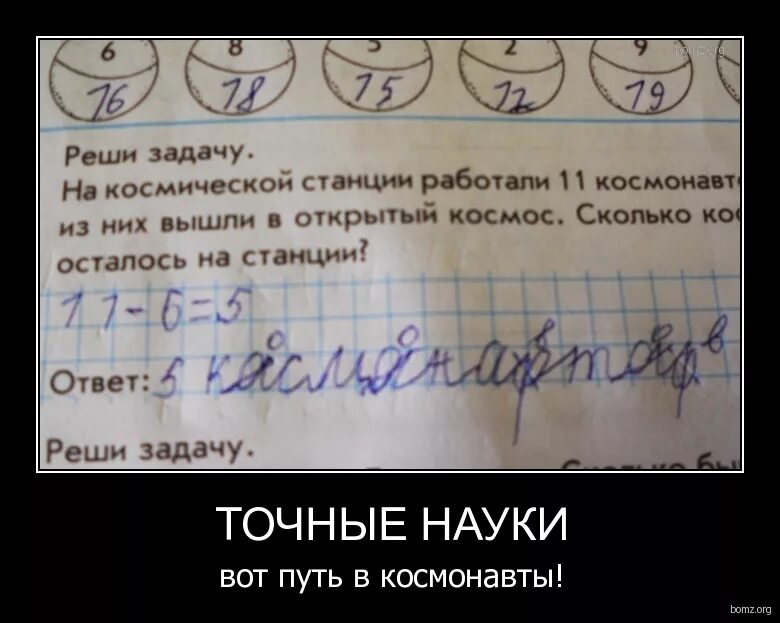 6 8 5 2 9
bomz.org
16 18 15 12 19
Реши задачу.
На космической станции работали 11 космонавт
из них вышли в открытый космос. Сколько кос
осталось на станции?
11-6=5
Ответ: 5
Реши задачу.
Сколько бы
ТОЧНЫЕ НАУКИ
вот путь в космонавты!
bomz.org